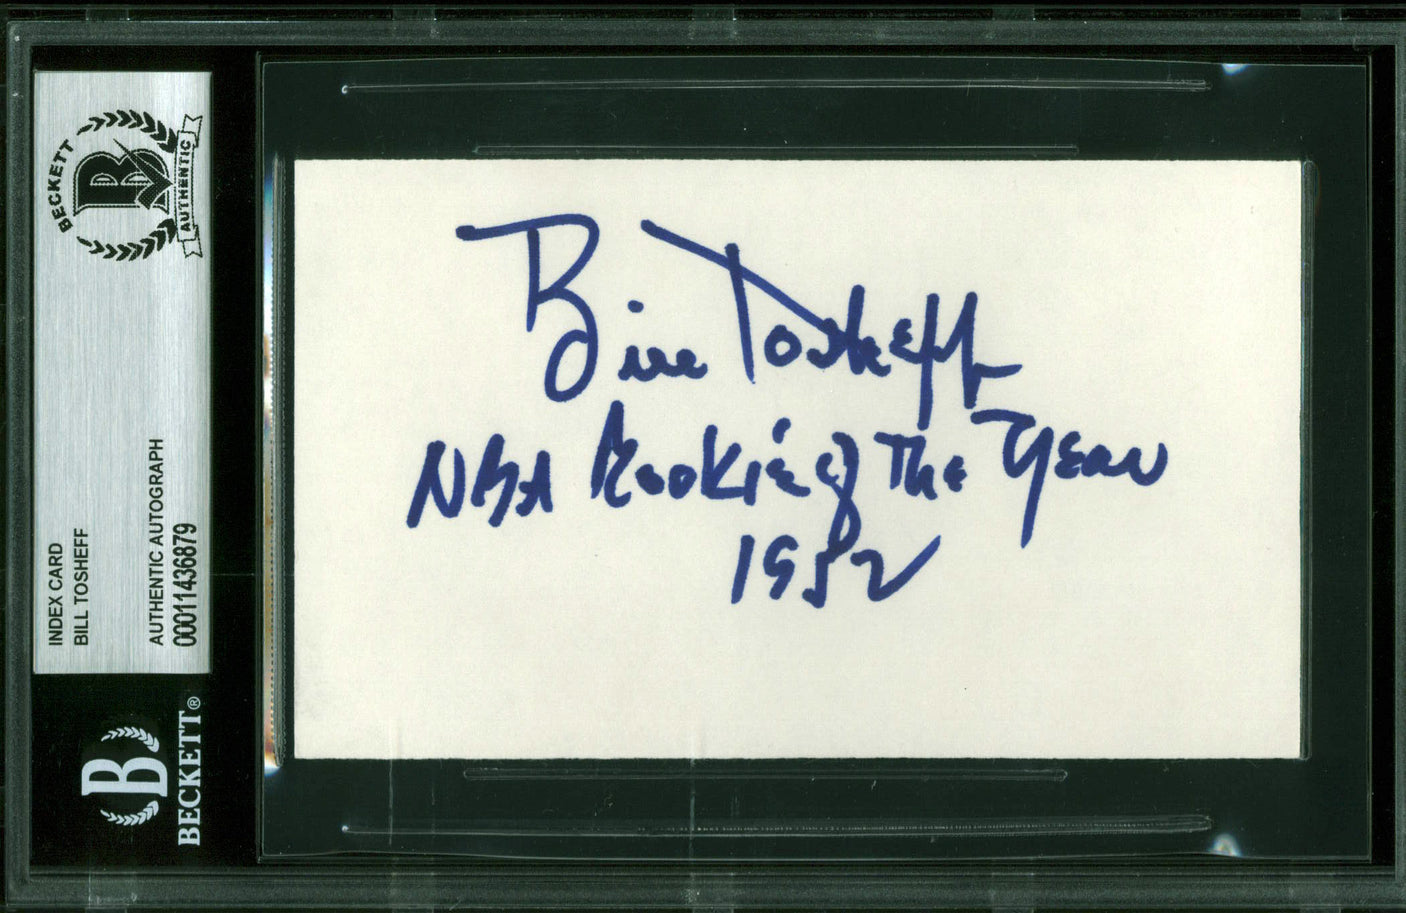 BECKETT
AUTHENTIC
INDEX CARD
BILL TOSHEFF
AUTHENTIC AUTOGRAPH
00011436879
B
BECKETT®
Bill Tosheff
NBA Rookie of The Year
1952